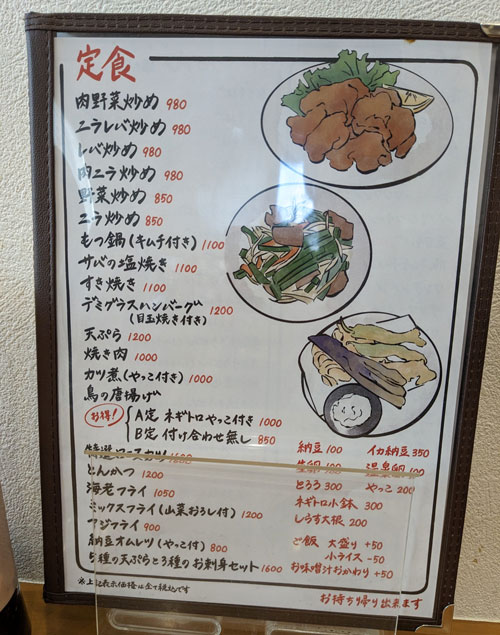 定食
肉野菜炒め 980
ニラレバ炒め 980
レバ炒め 980
肉ニラ炒め 980
野菜炒め 850
ニラ炒め 850
もつ鍋(キムチ付き) 1100
サバの塩焼き 1100
すき焼き 1100
デミグラスハンバーグ 1200
(目玉焼き付き)
天ぷら 1200
焼き肉 1000
カツ煮(やっこ付き) 1000
鳥の唐揚げ
お得! A定 ネギトロやっこ付き 1000
B定 付け合わせ無し 850
特選ロースカツ 1600
とんかつ 1200
海老フライ 1050
ミックスフライ(山菜おろし付) 1200
アジフライ 900
納豆オムレツ(やっこ付) 800
5種の天ぷらと3種のお刺身セット 1600
※上記表示価格は全て税込です
納豆 100 イカ納豆 350
生卵 100 温泉卵 100
とろろ 300 やっこ 200
ネギトロ小鉢 300
しらす大根 200
ご飯 大盛り +50
小ライス -50
お味噌汁おかわり +50
お持ち帰り出来ます